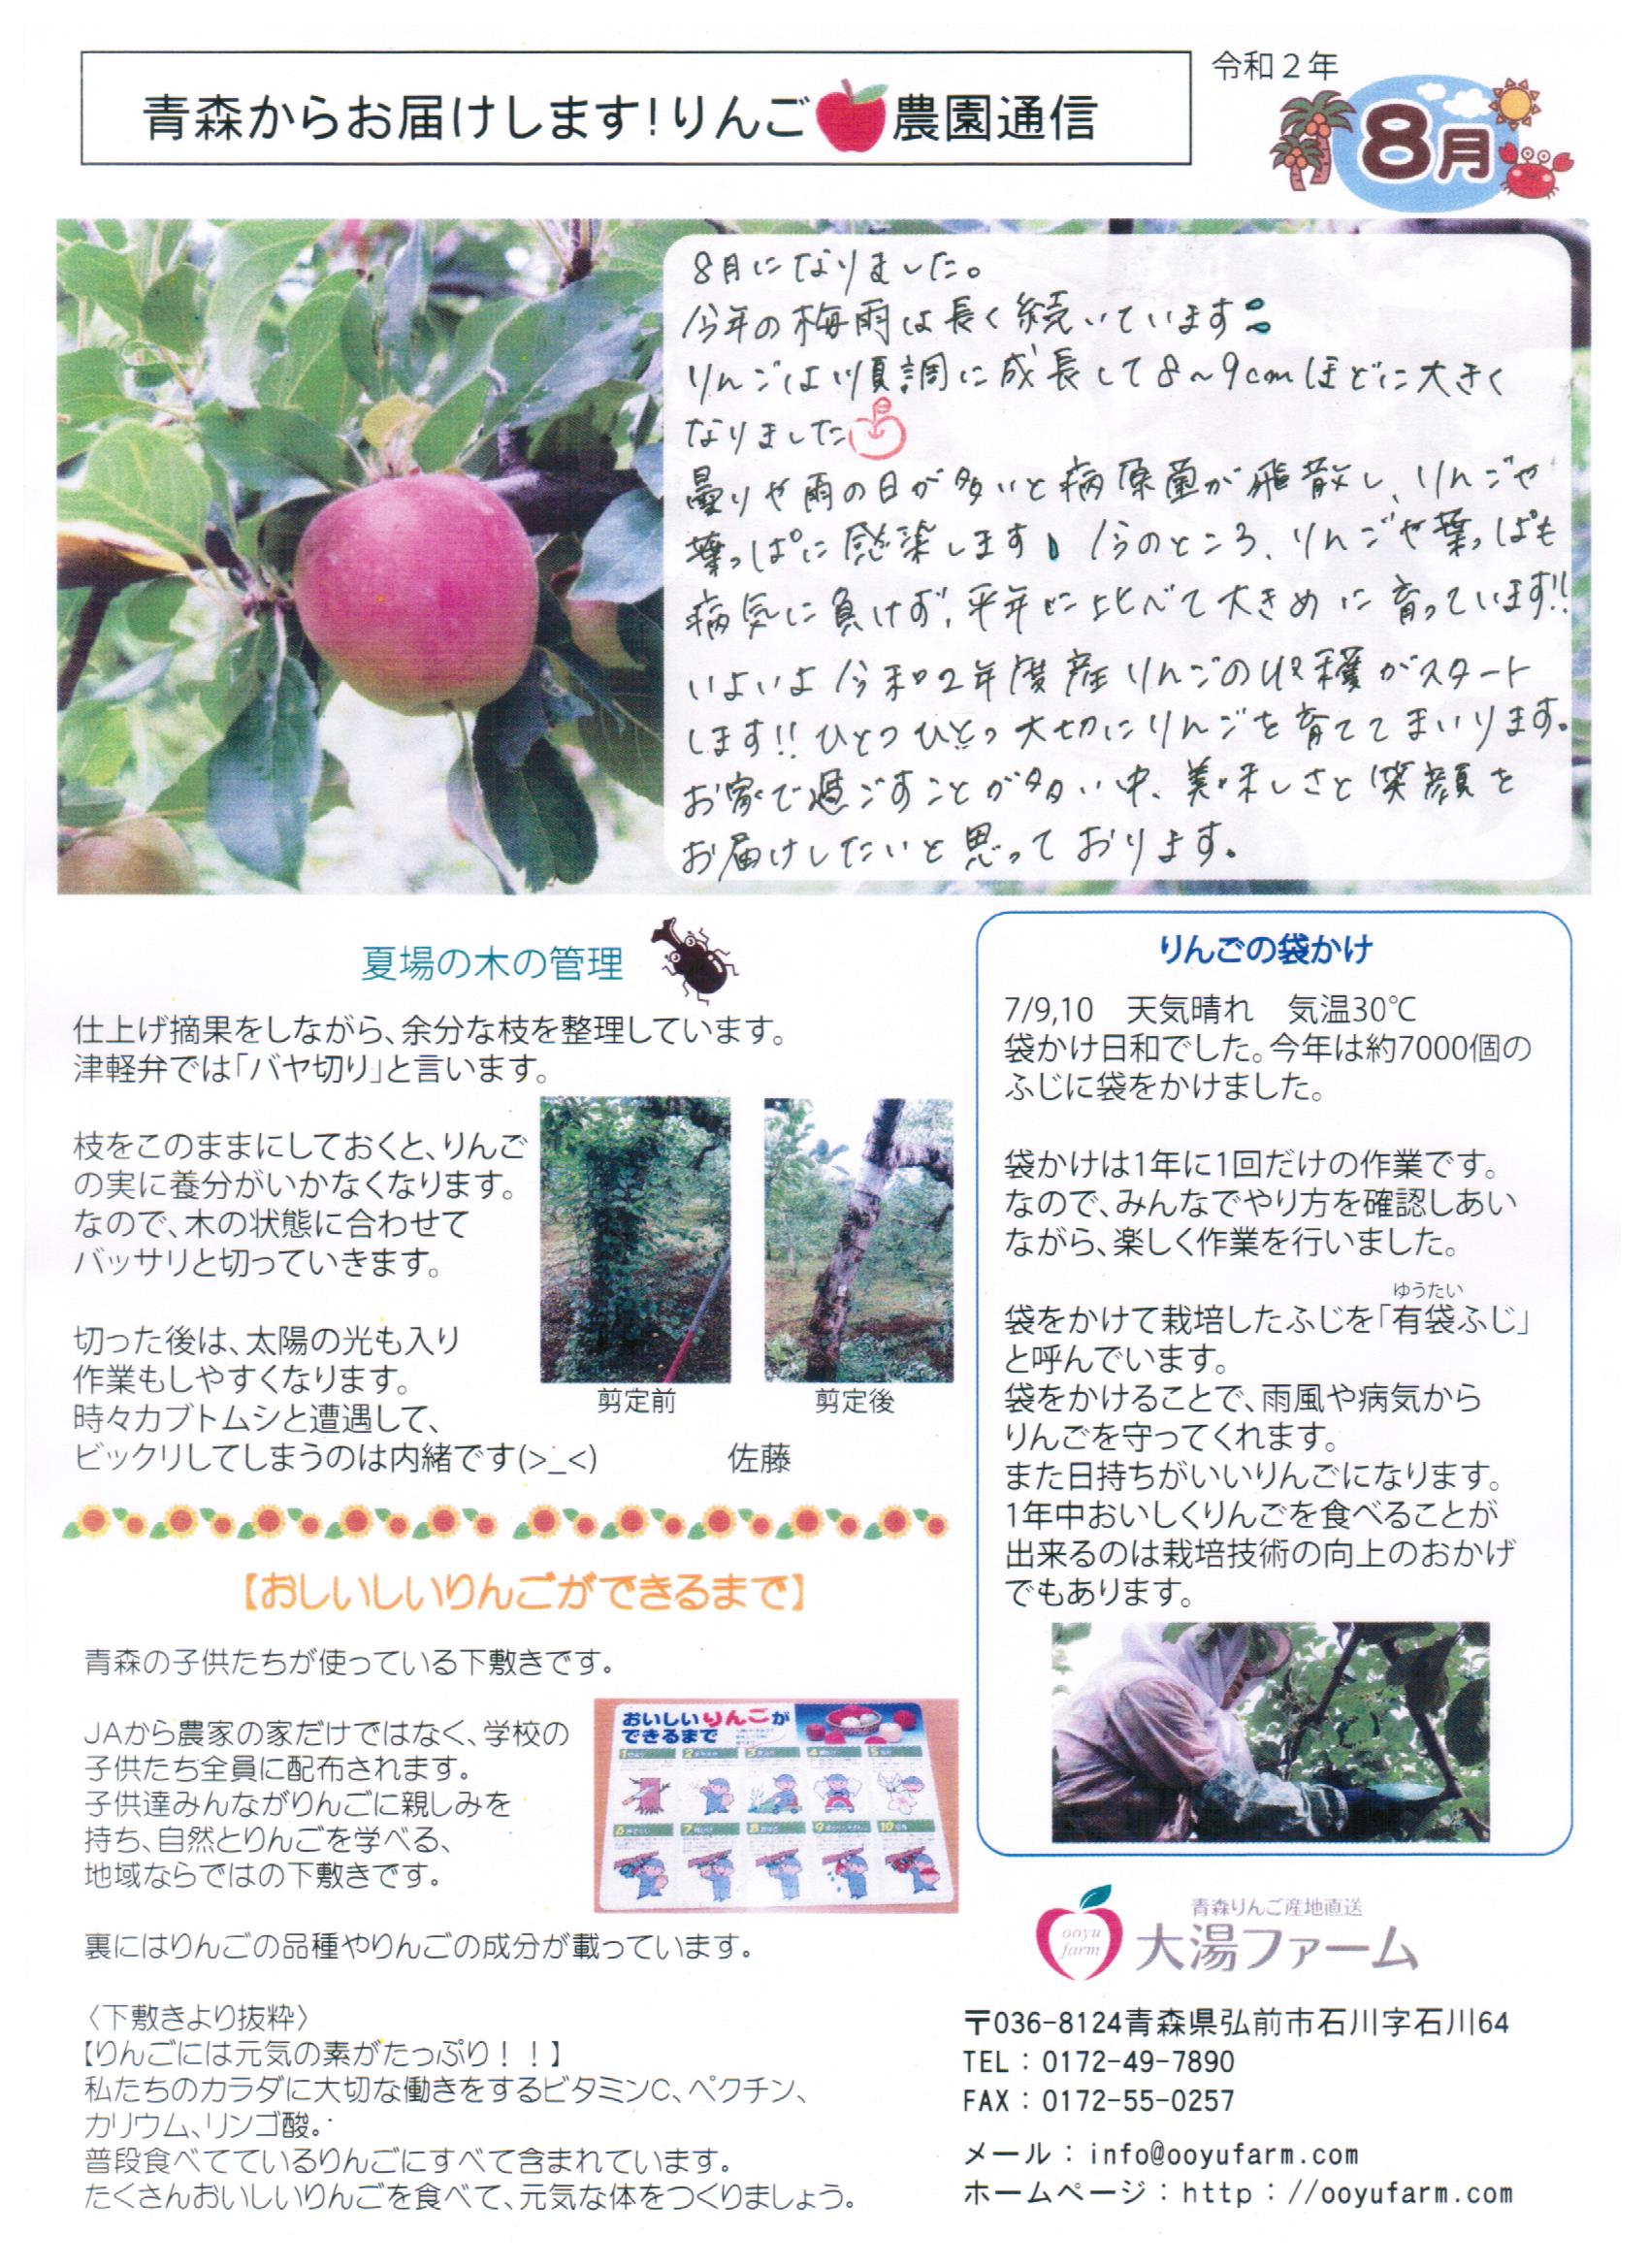 青森からお届けします！りんご農園通信
令和２年
8月
8月になりました。
今年の梅雨は長く続いています
りんごは順調に成長して8～9cmほどに大きく
なりました
曇りや雨の日が多いと病原菌が飛散し、りんごや
葉っぱに感染します 今のところ、りんごや葉っぱも
病気に負けず、平年に比べて大きめに育っています!!
いよいよ令和2年度産りんごの収穫がスタート
します!!ひとつひとつ大切にりんごを育ててまいります。
お家で過ごすことが多い中、美味しさと笑顔を
お届けしたいと思っております。
夏場の木の管理
仕上げ摘果をしながら、余分な枝を整理しています。
津軽弁では「バヤ切り」と言います。
枝をこのままにしておくと、りんご
の実に養分がいかなくなります。
なので、木の状態に合わせて
バッサリと切っていきます。
切った後は、太陽の光も入り
作業もしやすくなります。
時々カブトムシと遭遇して、
ビックリしてしまうのは内緒です(>_<)
佐藤
剪定前
剪定後
りんごの袋かけ
7/9,10　天気晴れ　気温30℃
袋かけ日和でした。今年は約7000個の
ふじに袋をかけました。
袋かけは1年に1回だけの作業です。
なので、みんなでやり方を確認しあい
ながら、楽しく作業を行いました。
ゆうたい
袋をかけて栽培したふじを「有袋ふじ」
と呼んでいます。
袋をかけることで、雨風や病気から
りんごを守ってくれます。
また日持ちがいいりんごになります。
1年中おいしくりんごを食べることが
出来るのは栽培技術の向上のおかげ
でもあります。
【おしいしいりんごができるまで】
青森の子供たちが使っている下敷きです。
JAから農家の家だけではなく、学校の
子供たち全員に配布されます。
子供達みんながりんごに親しみを
持ち、自然とりんごを学べる、
地域ならではの下敷きです。
おいしいりんごが
できるまで
1
2
3
4
5
6
7
8
9
10
裏にはりんごの品種やりんごの成分が載っています。
〈下敷きより抜粋〉
【りんごには元気の素がたっぷり！！】
私たちのカラダに大切な働きをするビタミンC、ペクチン、
カリウム、リンゴ酸。
普段食べてているりんごにすべて含まれています。
たくさんおいしいりんごを食べて、元気な体をつくりましょう。
ooyu
farm
青森りんご産地直送
大湯ファーム
〒036-8124青森県弘前市石川字石川64
TEL：0172-49-7890
FAX：0172-55-0257
メール：info@ooyufarm.com
ホームページ：http：//ooyufarm.com